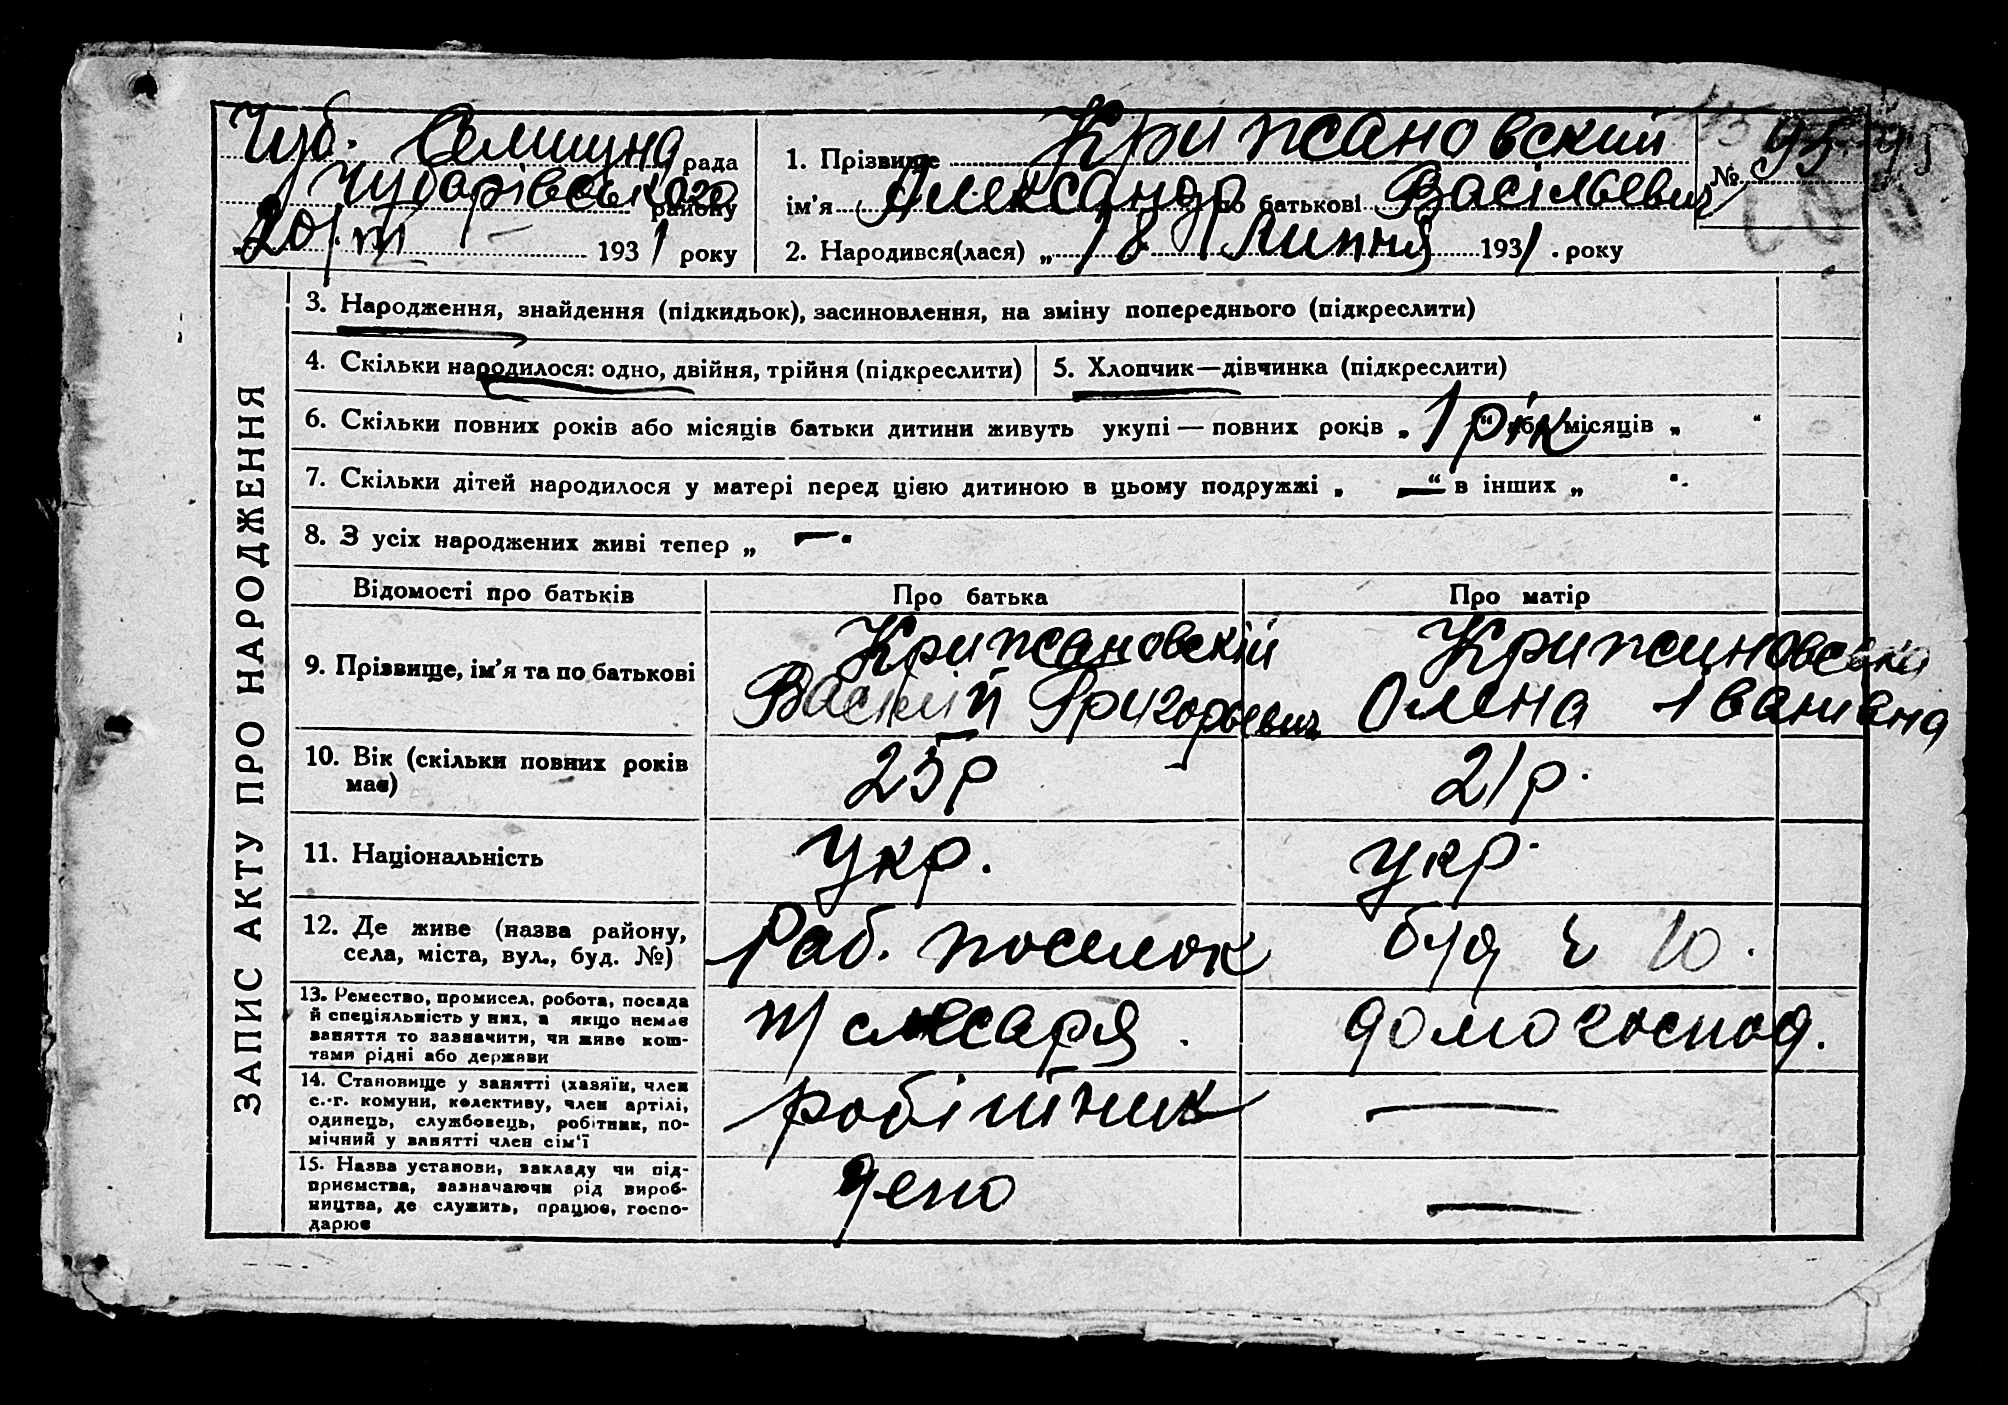 Чуб. Селищна рада
Чубарівського району
20/VII – 1931 року
1. Прізвище Крижановский
ім'я Александр по батькові Васільевич
№ 95
2. Народився(лася) „ 18 " Липня 1931 . року
ЗАПИС АКТУ ПРО НАРОДЖЕННЯ
3. Народження, знайдення (підкидьок), засиновлення, на зміну попереднього (підкреслити)
4. Скільки народилося: одно, двійня, трійня (підкреслити)
5. Хлопчик—дівчинка (підкреслити)
6. Скільки повних років або місяців батьки дитини живуть укупі — повних років „ 1 рік “ або місяців „ “
7. Скільки дітей народилося у матері перед цією дитиною в цьому подружжі „ — “ в інших „ “.
8. З усіх народжених живі тепер „ —.
Відомості про батьків
Про батька
Про матір
9. Прізвище, ім'я та по батькові
Крижановскій
Васілій Григорьевич
Крижановська
Олена Іванівна
10. Вік (скільки повних років
має)
25р
21р.
11. Національність
укр.
укр.
12. Де живе (назва району,
села, міста, вул., буд. №)
Раб. поселок
буд № 10.
13. Ремество, промисел, робота, посада
й спеціяльність у них, а якщо немає
заняття то зазначити, чи живе кош-
тами рідні або держави
п/слесаря.
домогоспод.
14. Становище у занятті (хазяїн, член
с.-г. комуни, колективу, член артілі,
одинець, службовець, робітник, по-
мічний у занятті член сім'ї
робітник
—
15. Назва установи, закладу чи під-
приємства, зазначаючи рід вироб-
ництва, де служить, працює, госпо-
дарює
депо
—